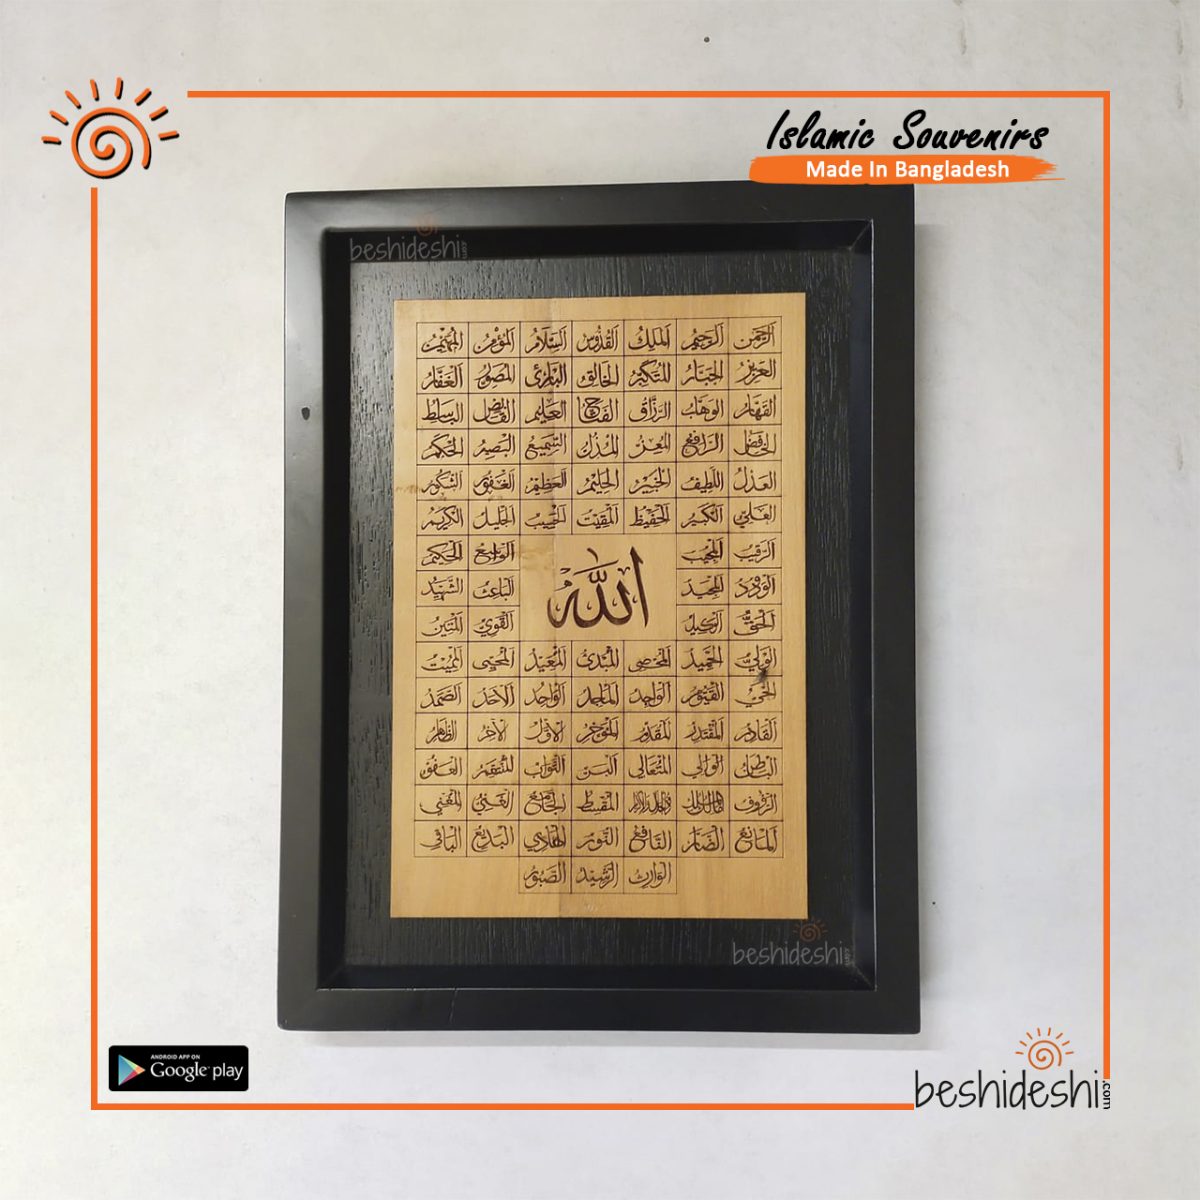 Islamic Souvenirs
Made In Bangladesh
beshideshi.com
الرحمن الرحيم الملك القدوس السلام المؤمن المهيمن
العزيز الجبار المتكبر الخالق البارئ المصور الغفار
القهار الوهاب الرزاق الفتاح العليم القابض الباسط
الخافض الرافع المعز المذل السميع البصير الحكم
العدل اللطيف الخبير الحليم العظيم الغفور الشكور
العلي الكبير الحفيظ المقيت الحسيب الجليل الكريم
الرقيب المجيب الواسع الحكيم
الودود المجيد الباعث الشهيد
الله
الحق الوكيل القوي المتين
الولي الحميد المحصي المبدئ المعيد المحيي المميت
الحي القيوم الواجد الماجد الواحد الاحد الصمد
القادر المقتدر المقدم المؤخر الاول الاخر الظاهر
الباطن الوالي المتعالي البر التواب المنتقم العفو
الرؤوف مالك الملك ذو الجلال والاكرام المقسط الجامع الغني المغني
المانع الضار النافع النور الهادي البديع الباقي
الوارث الرشيد الصبور
beshideshi.com
ANDROID APP ON
Google play
beshideshi.com